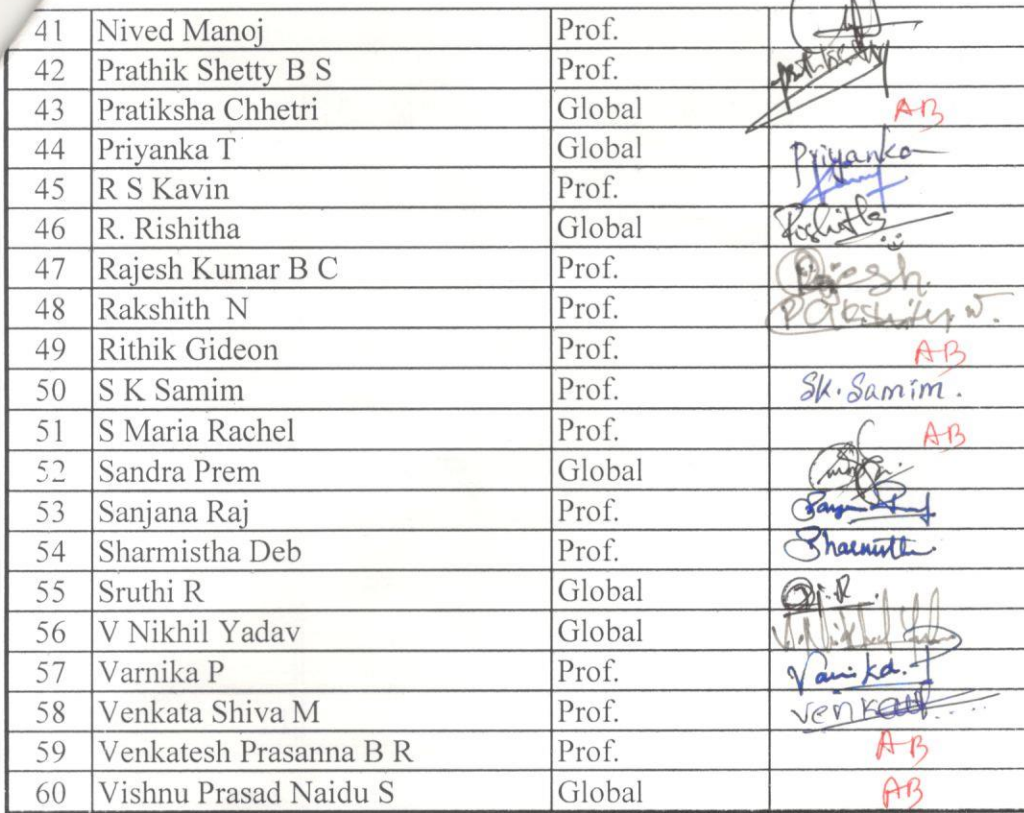 41 Nived Manoj Prof.
42 Prathik Shetty B S Prof.
43 Pratiksha Chhetri Global AB
44 Priyanka T Global Priyanka
45 R S Kavin Prof.
46 R. Rishitha Global Rishitha
47 Rajesh Kumar B C Prof. Rajesh.
48 Rakshith N Prof. Rakshith N.
49 Rithik Gideon Prof. AB
50 S K Samim Prof. SK. Samim.
51 S Maria Rachel Prof. AB
52 Sandra Prem Global
53 Sanjana Raj Prof.
54 Sharmistha Deb Prof. Sharmistha
55 Sruthi R Global
56 V Nikhil Yadav Global V. Nikhil Yadav
57 Varnika P Prof. Varnika. P
58 Venkata Shiva M Prof. Venkat
59 Venkatesh Prasanna B R Prof. AB
60 Vishnu Prasad Naidu S Global AB